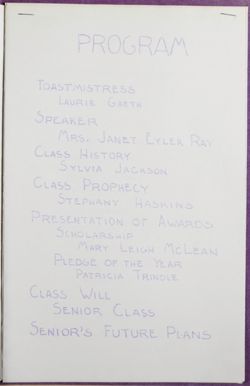 PROGRAM
TOASTMISTRESS
LAURIE GRETH
SPEAKER
MRS. JANET EYLER RAY
CLASS HISTORY
SYLVIA JACKSON
CLASS PROPHECY
STEPHANY HASKINS
PRESENTATION OF AWARDS
SCHOLARSHIP
MARY LEIGH MCLEAN
PLEDGE OF THE YEAR
PATRICIA TRINDLE
CLASS WILL
SENIOR CLASS
SENIOR'S FUTURE PLANS